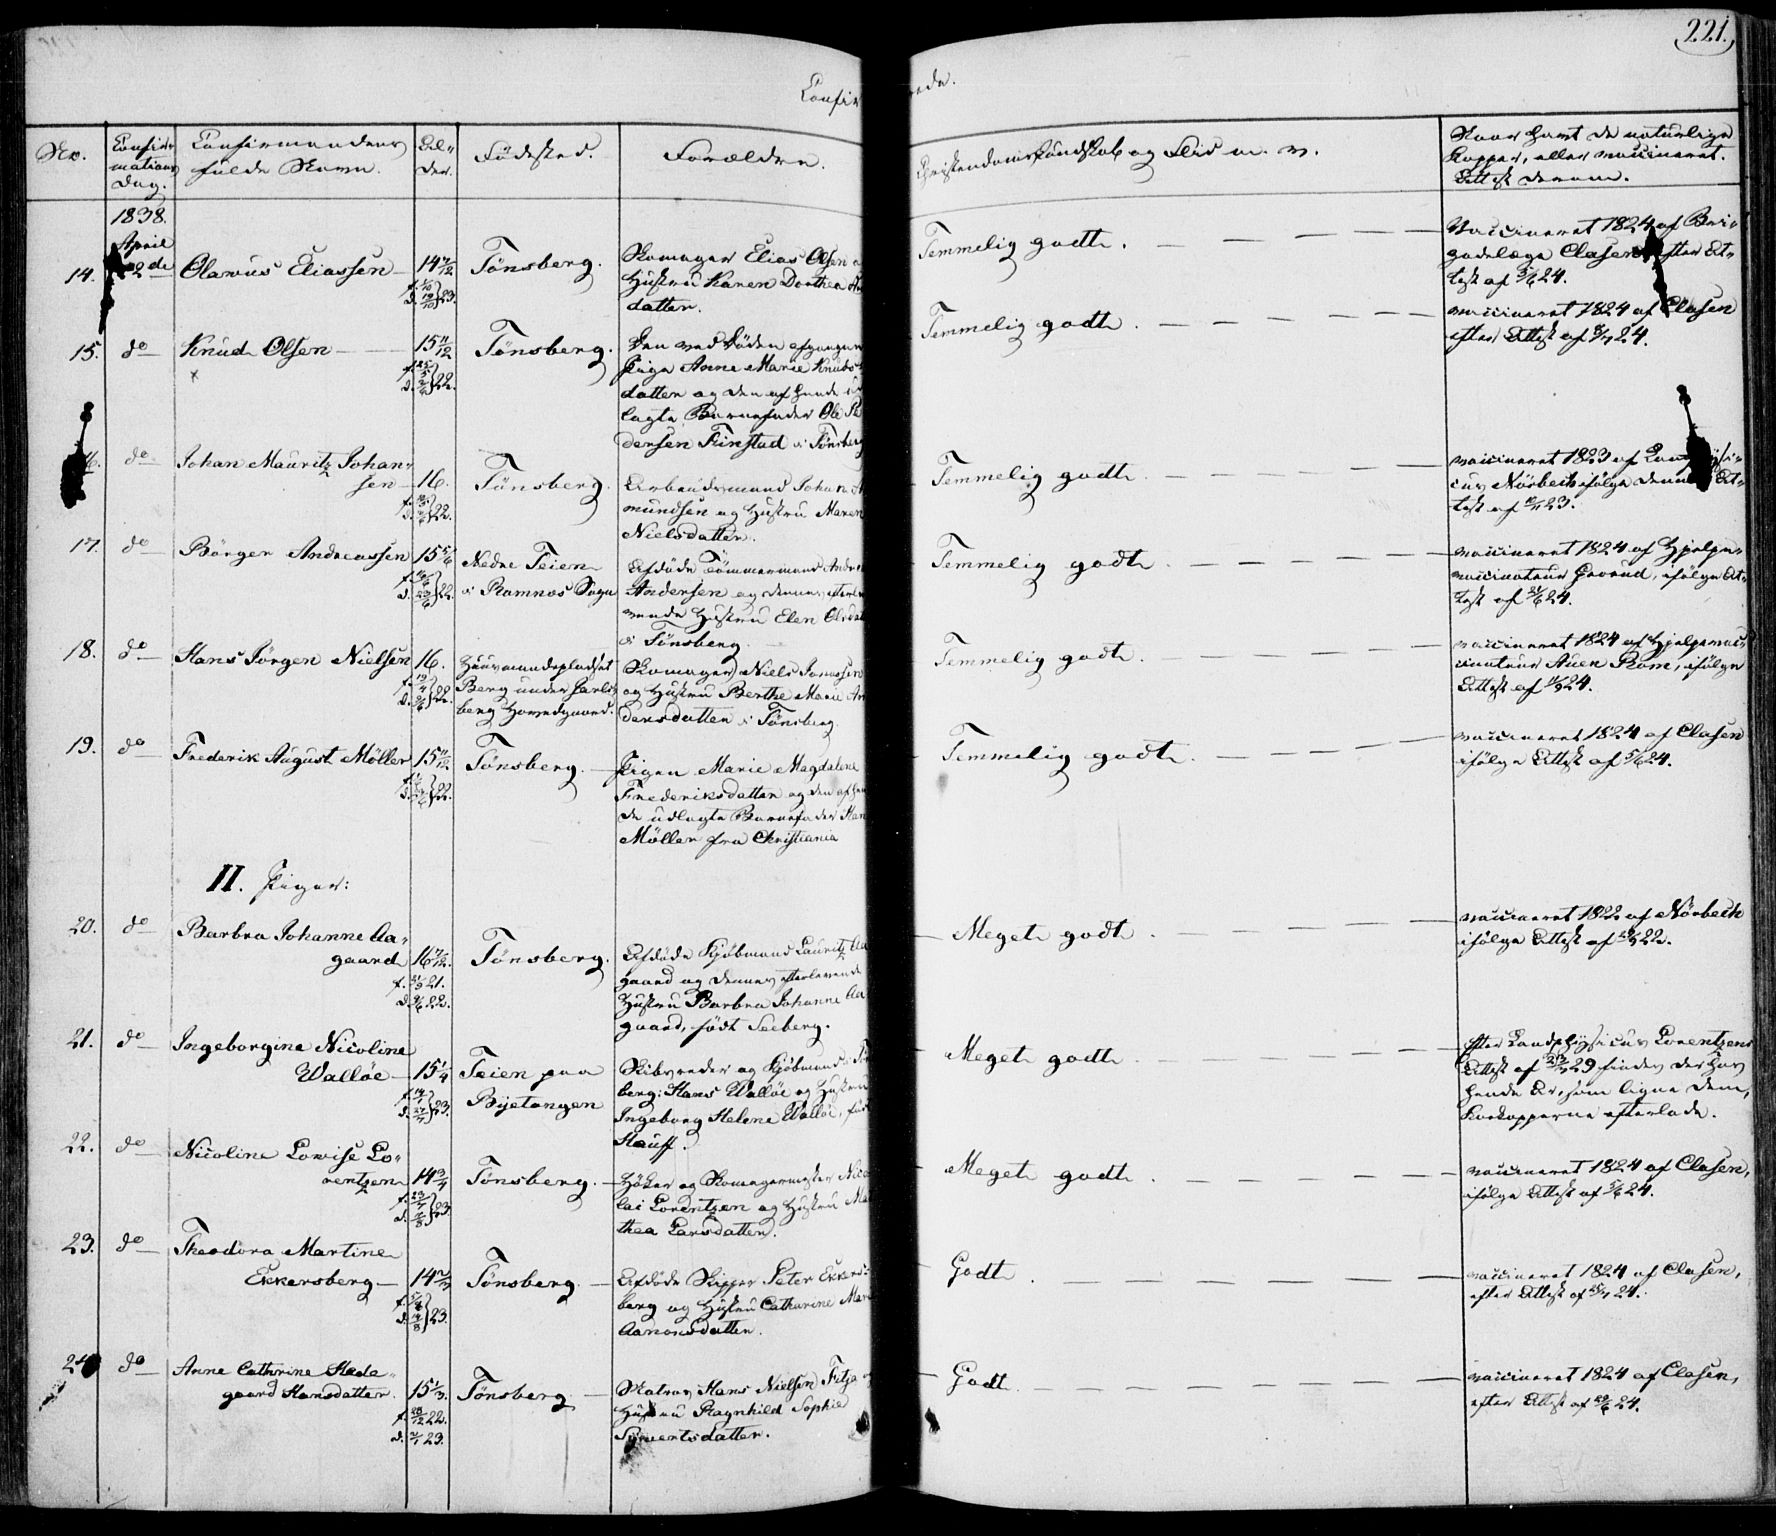 221.
Confir
rede.
No.
Confir-
mations
Dag.
Confirmandens
fulde Navn.
Al-
der.
Födested.
Forældre.
Christendomskundskab og Flid m. v.
Naar havt de naturlige
Kopper, eller vaccineret.
Attest derom.
1838.
April
14.
Olavus Eliassen
14 7/12
Tönsberg.
Skomager Elias Olsen
Hustru Karen Dorthea
datter.
Temmelig godt.
Vaccineret 1824 af Bri-
gadelæge Clasen efter At-
test af 24.
15.
do
Knud Olsen
15 11/12
22.
Tönsberg.
Den ved Döden afgangne
Pige Anne Marie Knuds-
datter og den af hende
lagte Barnefader Ole
dersen Finstad i Tönsberg
Temmelig godt.
vaccineret 1824 af Clasen
efter Attest af 24.
do
Johan Mauritz Johan-
sen
16.
22.
Tönsberg.
Arbeidsmand Johan
mundsen og Hustru Maren
Nielsdatter.
Temmelig godt
vaccineret 1823 af
cus Nörbech ifölge dennes At-
test af 23.
17.
do
Börger Andreassen
15 5/6
22.
Nedre Teien
i Ramnæs Sogn
Afdöde Tömmermand
Andersen og dennes efterle
vende Hustru Elen
i Tönsberg
Temmelig godt
vaccineret 1824 af Hjelpe-
vaccinateur ifölge At-
test af 24.
18.
do
Hans Jörgen Nielsen
16.
22.
Huusmandspladset
Berg under Jarls-
berg Hovedgaard.
Skomager Niels
og Hustru Berthe Marie An
dersdatter i Tönsberg.
Temmelig godt.
vaccineret 1824 af Hjelpevac-
cinateur ifölge
Attest af 24.
19.
do
Frederik August Möller
15 11/12
22.
Tönsberg.
Pigen Marie Magdalene
Frederiksdatter og den af hen
de udlagte Barnefader Han
Möller fra Christiania
Temmelig godt.
vaccineret 1824 af Clasen
ifölge Attest af 5/6 24.
II. Piger:
20.
do
Barbra Johanne Aa-
gaard
16 7/12.
21.
22.
Tönsberg.
Afdöde Kjöbmand Lauritz Aa
gaard og dennes efterlevende
Hustru Barbra Johanne Aa
gaard, födt Seeberg.
Meget godt
vaccineret 1822 af Nörbech
ifölge Attest af 22.
21.
do
Ingeborgine Nicoline
Wallöe
15 1/4
23.
Teien paa
Byetangen
Skibsreder og Kjöbmand i
berg: Hans Wallöe og Hustru
Ingeborg Helene Wallöe, föd
Hauff.
Meget godt
Efter Landphysicus Lorentzens
Attest af 29 findes der hos
hende Ar, som ligne dem,
Kokopperne efterlade.
22.
do
Nicoline Lovise Lo-
rentzen
14 3/4
23
Tönsberg.
Höker og Skomagermester Nico
lai Lorentzen og Hustru Ma
thea Larsdatter.
Meget godt
vaccineret 1824 af Clasen,
ifölge Attest af 5/6 24.
23.
do
Theodora Martine
Ekkersberg
14 2/3
23.
Tönsberg.
Afdöde Skipper Peter Ekkers-
berg og Hustru Catharine Mari
Aanonsdatter.
Godt
vaccineret 1824 af Clasen,
efter Attest af 24.
24
do
Anne Cathrine Hede-
gaard Hansdatter.
15 1/3.
f. 28/12 22.
d. 23.
Tönsberg
Matros Hans Nielsen
Hustru Ragnhild Sophie
Syvertsdatter.
Godt
vaccineret 1824 af Clasen,
efter Attest af 24.